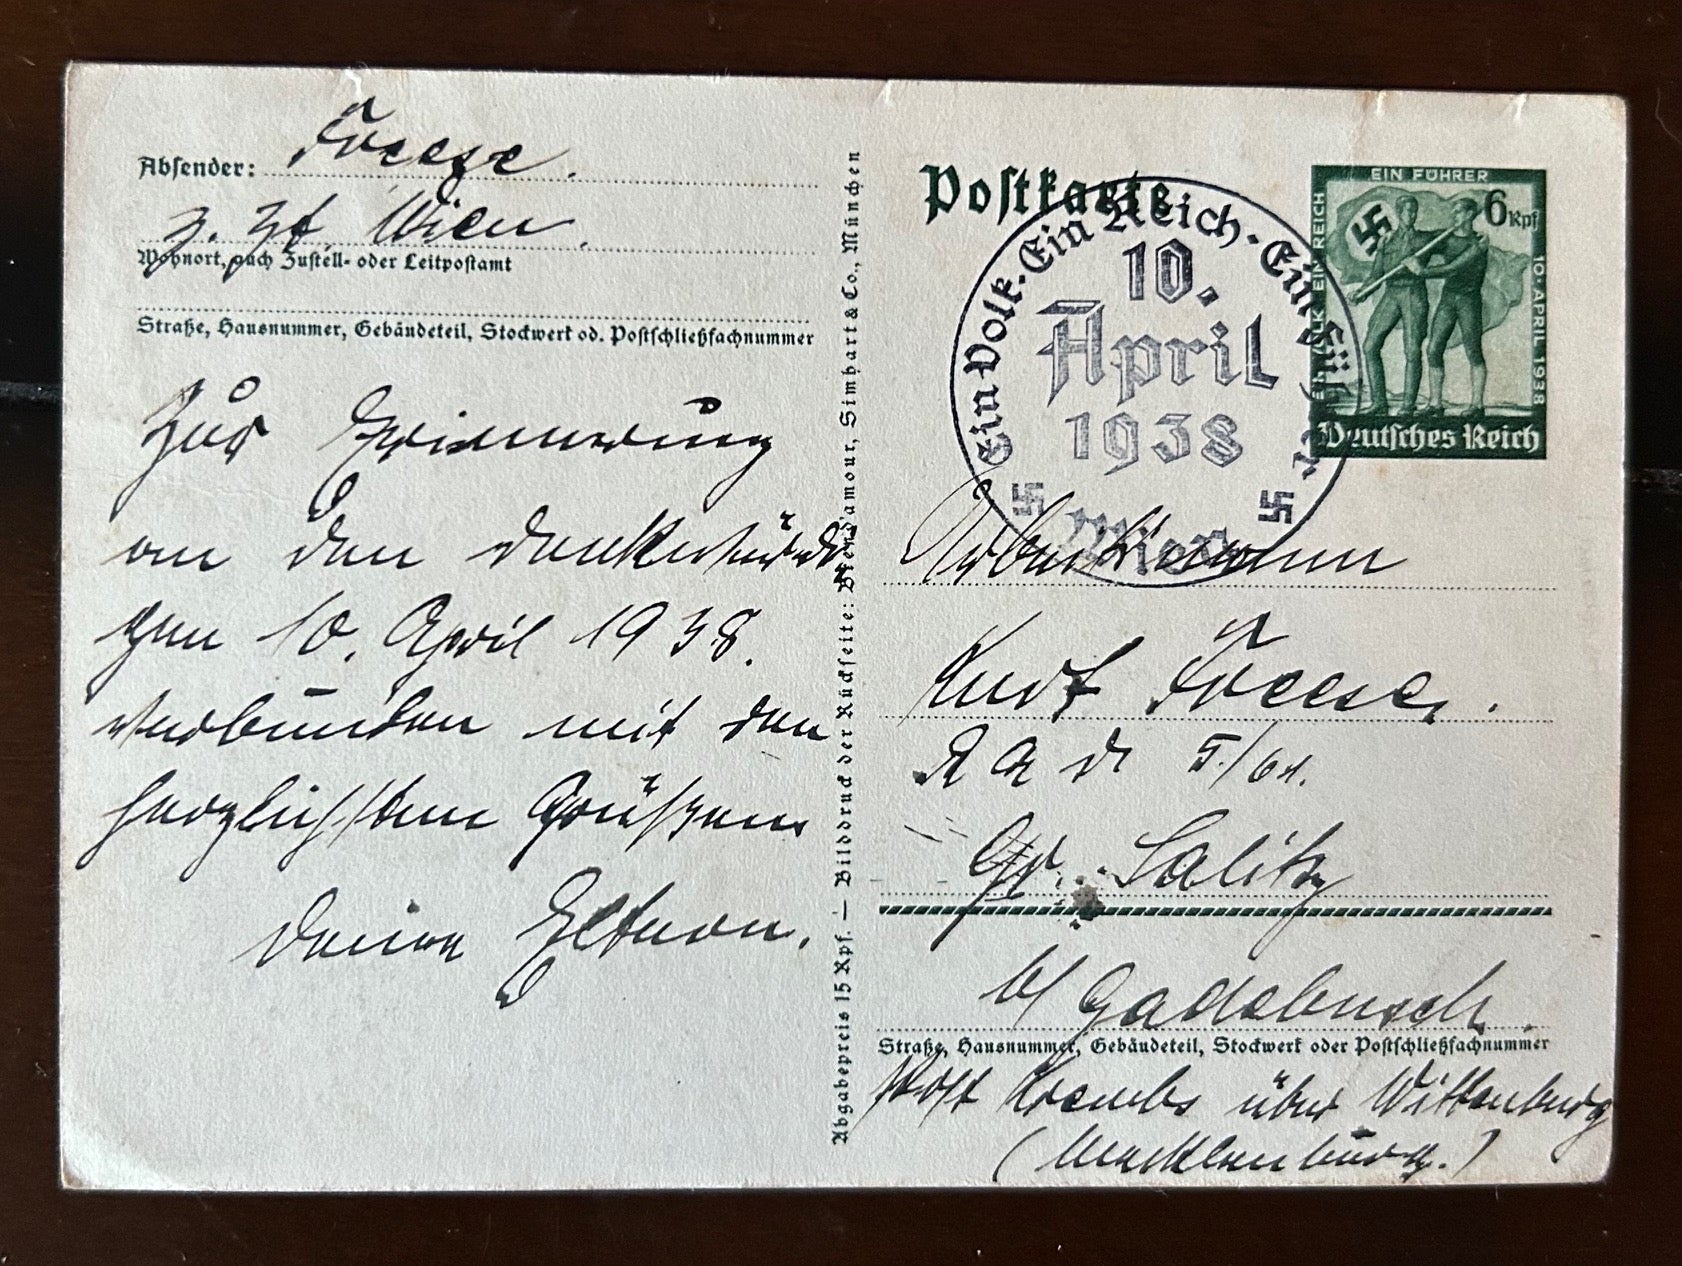 Absender: Freese.
z. Zt. Wien.
Wohnort, auch Zustell- oder Leitpostamt
Straße, Hausnummer, Gebäudeteil, Stockwerk od. Postschließfachnummer
Zur Erinnerung
an den denkwürdi
gen 10. April 1938.
verbunden mit den
herzlichsten Grüßen
Deine Eltern.
Abgabepreis 15 Rpf. — Bilddruck der Rückseite: Brend'amour, Simhart & Co., München
Postkarte
Ein Volk · Ein Reich · Ein Führer
10.
April
1938
Wien
EIN VOLK EIN REICH
EIN FÜHRER
6 Rpf
10·APRIL 1938
Deutsches Reich
Arbeitsmann
Kurt Freese.
R A D 5./61.
Gr. Salitz
b/ Gadebusch.
Straße, Hausnummer, Gebäudeteil, Stockwerk oder Postschließfachnummer
Post Krembs über Wittenburg
(Mecklenburg.)